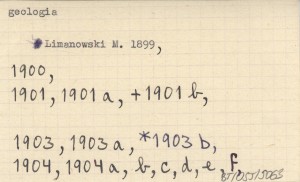 geologia
Limanowski M. 1899,
1900,
1901, 1901 a, + 1901 b,
1903, 1903 a, *1903 b,
1904, 1904 a, b, c, d, e, f